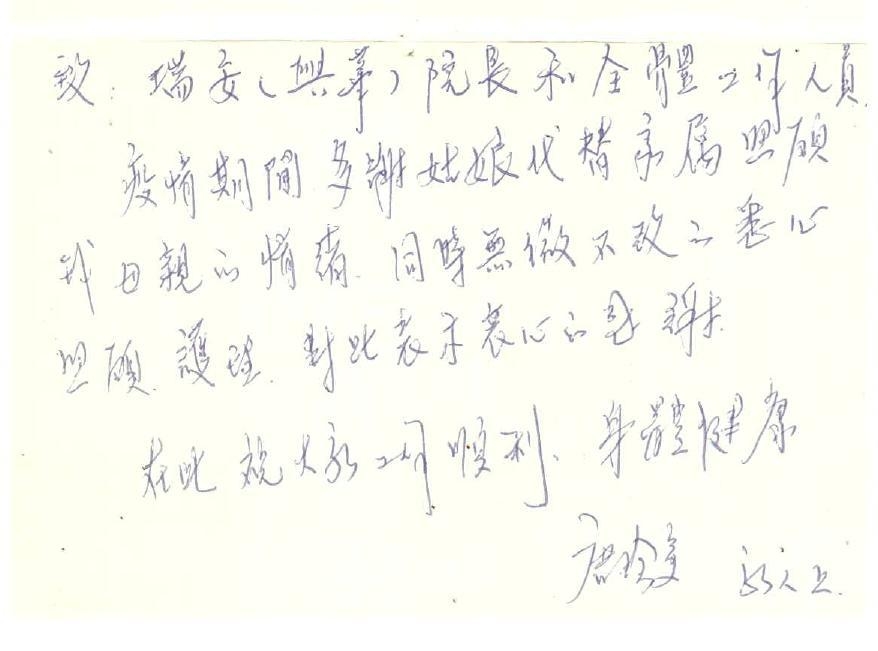 致：瑞安（興華）院長和全體工作人員
疫情期間多謝姑娘代替家属照顧
我母親的情緒.同時無微不致的悉心
照顧.護理.對此表示衷心的感謝.
在此祝大家工作順利、身體健康
家人上.